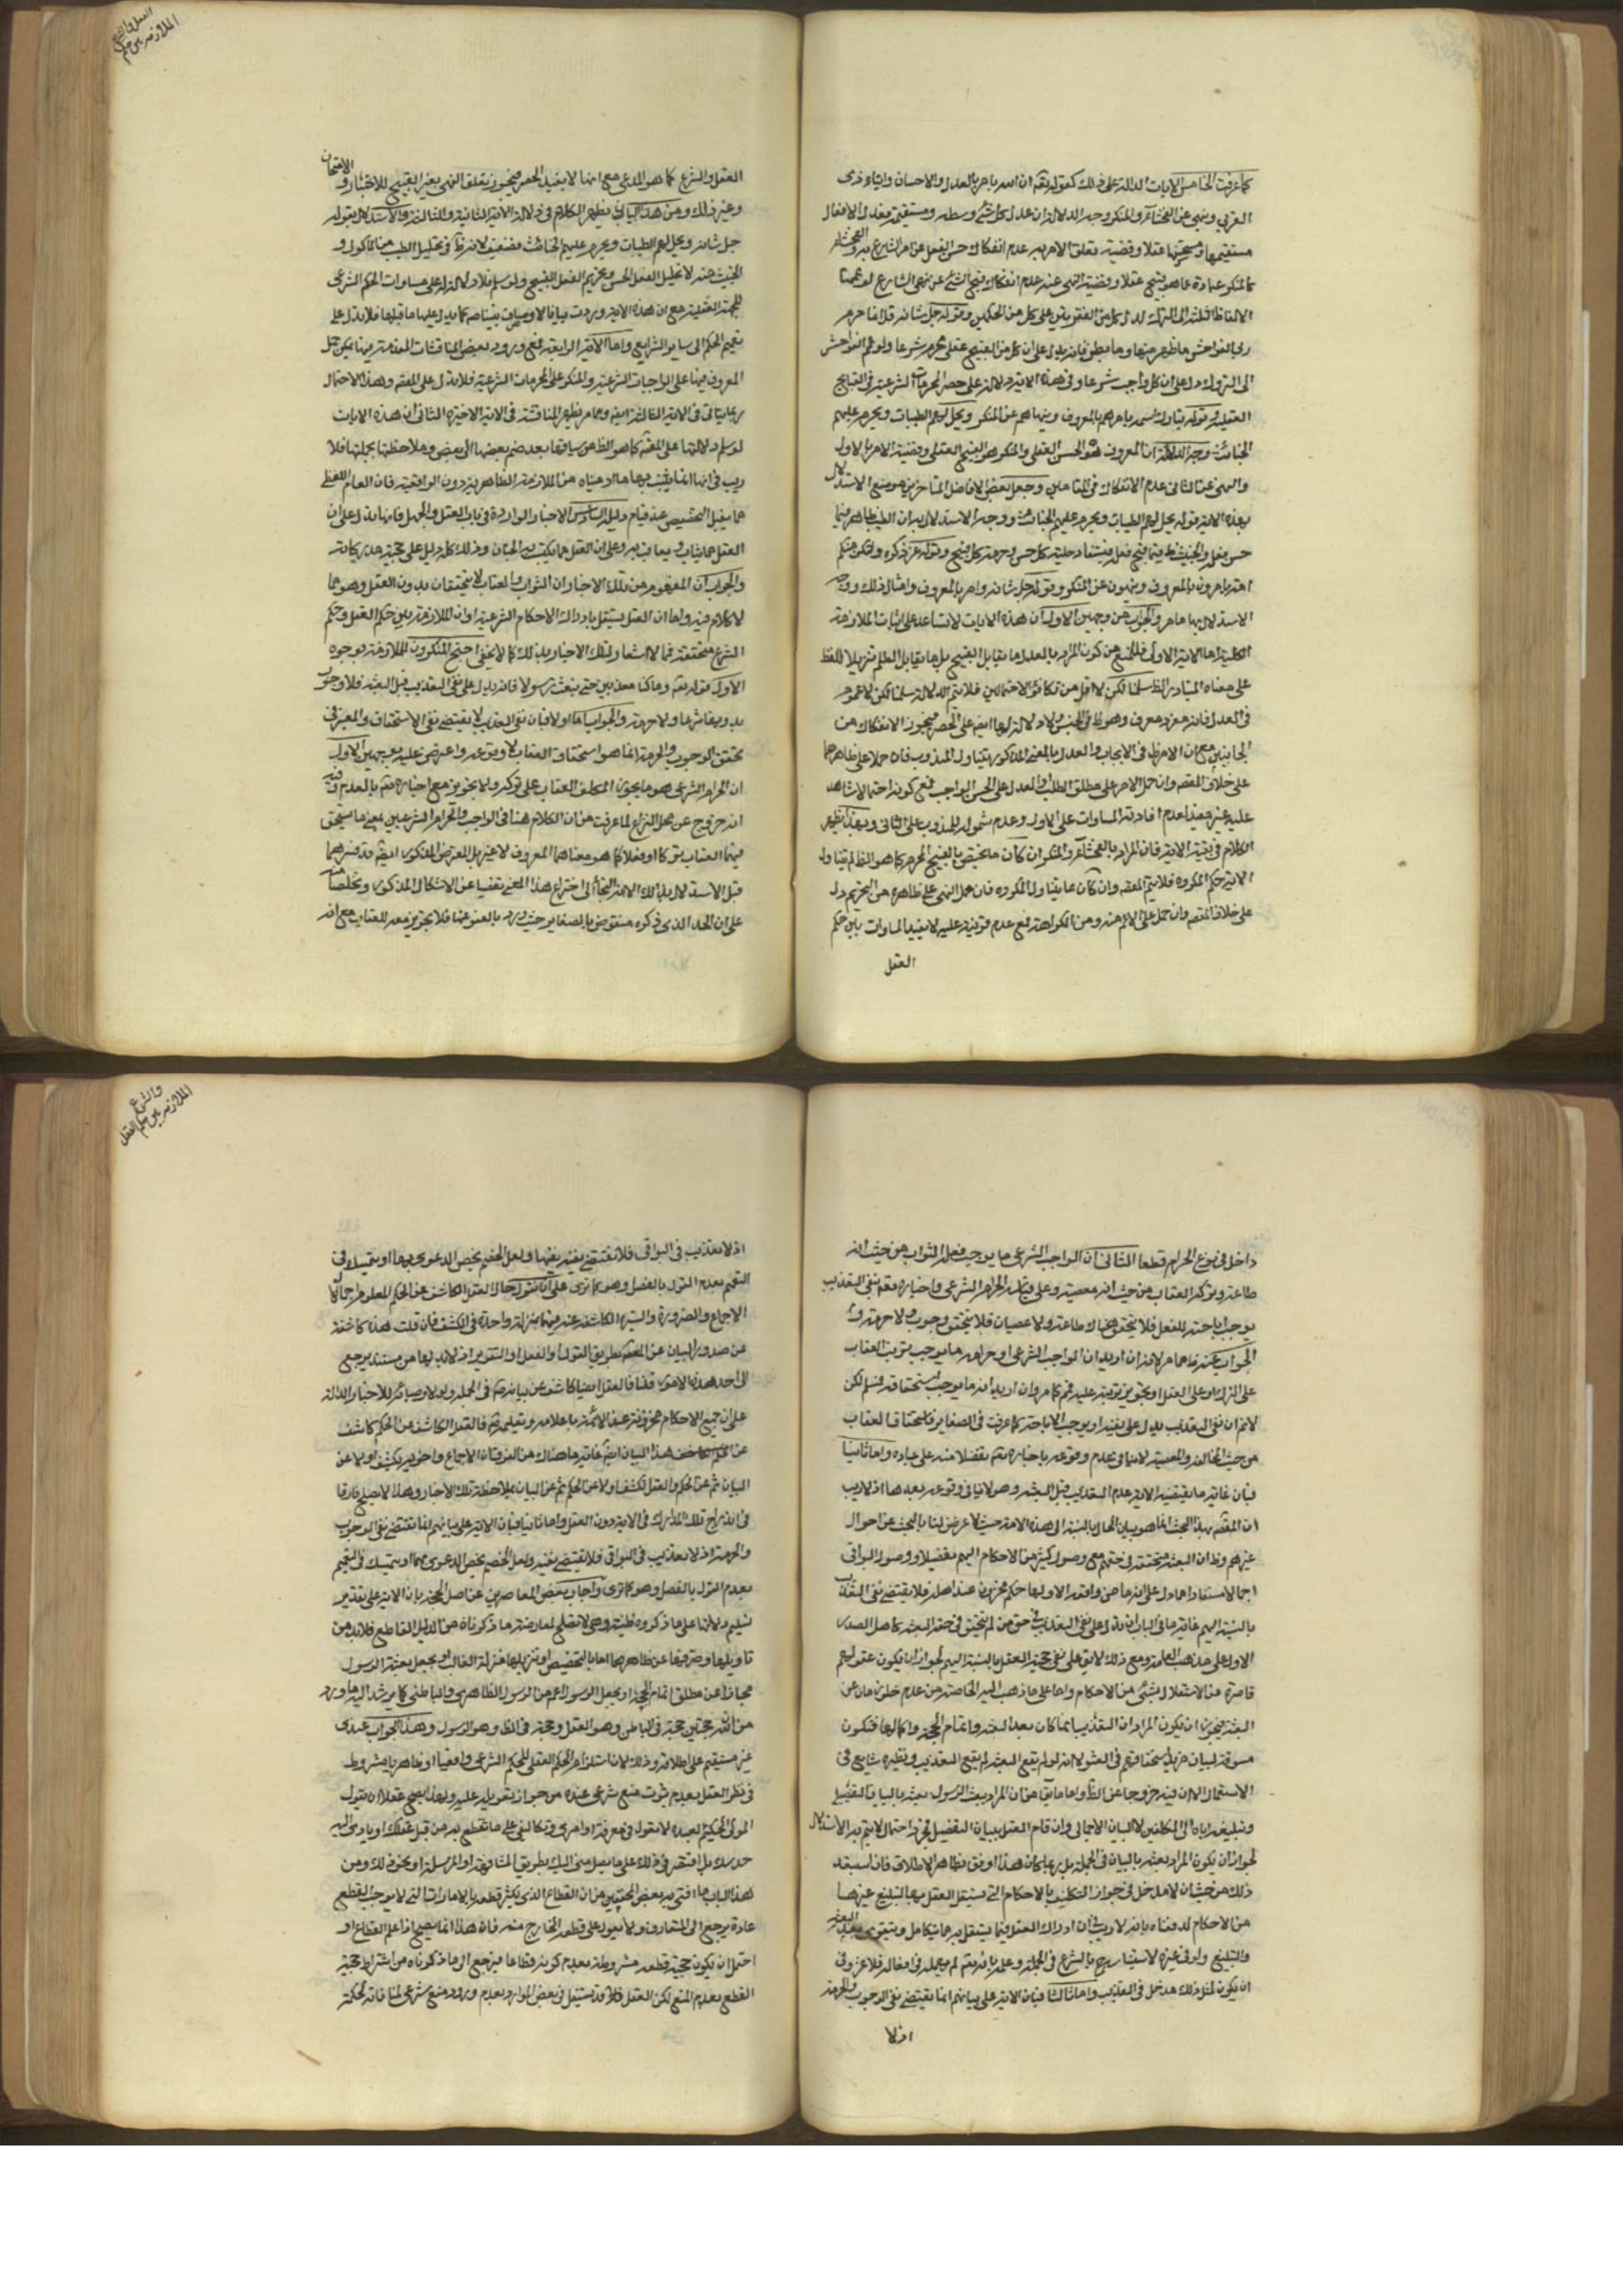 كما عرفت الخامس الايات الدالة على ذلك كقوله تعم ان الله يامر بالعدل والاحسان وايتاء ذى
القربى وينهى عن الفحشاء والمنكر وجه الدلالة ان عدل كل شئ وسطه ومستقيمه فعدل الافعال
مستقيمها عقلا وقضية تعلق الامر به عدم انفكاك حسن الفعل عن امر الشارع به والفحشاء
كالمنكر عبارة عما هو قبيح عقلا وقضية النهى عنه عدم انفكاك قبح الشئ عن نهى الشارع
ربى الفواحش ما ظهر منها وما بطن فانه يدل على ان كل من القبيح عقلى محرم شرعا
الى التروك دل على ان كل واجب شرعا وفى هذه الاية دلالة على حصر المحرمات الشرعية فى القبايح
العقلية وقوله تبارك اسمه يامرهم بالمعروف وينهاهم عن المنكر ويحل لهم الطيبات ويحرم عليهم
الخبائث وجه الدلالة ان المعروف هو الحسن العقلى والمنكر هو القبيح العقلى وقضية الامر بالاول
والنهى عن الثانى عدم الانفكاك فى المقامين وجعل بعض الافاضل المتاخرين موضع الاستدلال
بهذه الاية قوله يحل لهم الطيبات ويحرم عليهم الخبائث ووجه الاستدلال به ان الطيب
حسن فعله والخبيث فيما قبح فعله فيستفاد حلية كل حسن وحرمة كل قبيح وقوله عز ذكره ولتكن منكم
امة يامرون بالمعروف وينهون عن المنكر وقوله جل شانه وامر بالمعروف وامثال ذلك ووجه
الاستدلال بها ما مر والجواب من وجهين الاول ان هذه الايات لا تساعد على اثبات الملازمة
الكلية اما الاية الاولى فللمنع من كون المراد بالعدل ما يقابل القبيح بل ما يقابل الظلم تنزيلا للفظ
على معناه المتبادر الظ سلمنا لكن لا اقل من تكافؤ الاحتمالين فلا يتم الدلالة سلمنا لكن لا عموم
فى العدل فانه مفرد معرف وهو ظ فى الجنس ولا دلالة لها ايض على الحصر فيجوز الانفكاك من
الجانبين مع ان الامر ظ فى الايجاب والعدل بالمعنى المذكور يتناول المندوب فان حملا على ظاهرهما
على خلاف المقصم وان حمل الامر على مطلق الطلب او العدل على الحسن الواجب فمع كونه احتمالا لا شاهد
عليه غير مفيد لعدم افادته المساوات على الاول وعدم شموله للمندوب على الثانى وبهذا يظهر
الكلام فى بقية الاية فان المراد بالفحشاء والمنكر ان كان ما يختص بالقبيح المحرم كما هو الظ لم تتناول
الاية حكم المكروه فلا يتم المقصم وان كان ما يتناول المكروه فان حمل النهى على ظاهره من التحريم دل
على خلاف المقصم وان حمل على الاعم منه ومن الكراهة فمع عدم قرينة عليه لا يفيد المساوات بين حكم
العقل
العقل والشرع
الملازمة بين حكم
العقل والشرع كما هو المدعى مع انها لا يفيد الحصر فيجوز تعلق النهى بغير القبيح للاختبار و الامتحان
وغير ذلك ومن هذا البيان يظهر الكلام فى دلالة الاية الثانية والثالثة والاستدلال بقوله
جل شانه ويحل لهم الطيبات ويحرم عليهم الخبائث فضعيف لانه ظ فى تحليل الطيب من المأكول و
الخبيث منه لا تحليل الفعل الحسن وتحريم الفعل القبيح ولو سلم فلا دلالة له على مساوات الحكم الشرعى
للجهة العقلية مع ان هذه الاية وردت بيانا لاوصاف نبينا صم كما يدل عليها ما قبلها فلا يدل على
تعميم الحكم الى ساير الشرايع واما الاية الرابعة فمع ورود بعض المناقشات المتقدمة فيها يمكن حمل
المعروف فيها على الواجبات الشرعية والمنكر على المحرمات الشرعية فلا يدل على المقصم وهذا الاحتمال
ربما ياتى فى الاية الثالثة ايض ومما مر يظهر المناقشة فى الاية الاخيرة الثانى ان هذه الايات
لو سلم دلالتها على المقصم كما هو الظ من سياقها بعد ضم بعضها الى بعض وملاحظتها بجملتها فلا
ريب فى انها انما يثبت بها ما ادعيناه من الملازمة الظاهرية دون الواقعية فان العام اللفظى
مما يقبل التخصيص عند قيام دليل السادس الاخبار الواردة فى باب العقل والجهل فانها تدل على ان
العقل مما يثاب ويعاقب به وعلى ان العقل مما يكتسب به الجنان وذلك كله دليل على حجية مدركاته
والجواب ان المفهوم من تلك الاخبار ان الثواب والعقاب لا يتحققان بدون العقل وهو مما
لا كلام فيه واما ان العقل يستقل بادراك الاحكام الشرعية او ان الملازمة بين حكم العقل وحكم
الشرع متحققة فمما لا اشعار لتلك الاخبار بذلك كما لا يخفى احتج المنكرون للملازمة بوجوه
الاول قوله تعم وما كنا معذبين حتى نبعث رسولا فانه يدل على نفى التعذيب قبل البعثة فلا وجوب
بدونها ولا حرمة والجواب اما اولا فبان نفى التعذيب لا يقتضى نفى الاستحقاق والمعتبر فى
تحقق الوجوب والحرمة انما هو استحقاق العقاب لا وقوعه واعترض عليه بوجهين الاول
ان الحرام الشرعى هو ما يجوز المكلف العقاب على تركه ولا تجويز مع اخباره تعم بالعدم وفيه
انه خروج عن محل النزاع لما عرفت من ان الكلام هنا فى الواجب والحرام الشرعيين بمعنى ما يستحق
فيهما العقاب تركا او فعلا كما هو معناهما المعروف لا غير بل المعترض المذكور ايضا قد فسرهما
قبل الاستدلال بذلك الا انه التجأ الى اختراع هذا المعنى تفصيا عن الاشكال المذكور وتخلصا منه
على ان الحد الذى ذكره منقوض بالصغاير حيث ورد بالعفو عنها فلا تجويز معه للعقاب مع انه
داخل فى نوع الحرام قطعا الثانى ان الواجب الشرعى ما يوجب فعله الثواب من حيث انه
طاعة وتركه العقاب من حيث انه معصية وعلى قياسه الحرام الشرعى واخباره تعم بنفى التعذيب
يوجب اباحته للفعل فلا يتحقق هناك طاعة ولا عصيان فلا يتحقق وجوب ولا حرمة و
الجواب عنه ما مر لانه ان اريد ان الواجب الشرعى او حرامه ما يوجب ترتب العقاب
على الترك او على الفعل او تجويز ترتبه عليه فمم كما مر وان اريد انه ما يوجب استحقاقه فمسلم لكن
لا نم ان نفى التعذيب يدل على نفيه او يوجب الاباحة كما عرفت فى الصغاير فاستحقاق العقاب
من حيث المخالفة والمعصية لا ينافى عدم وقوعه باخباره تعم تفضلا منه على عباده واما ثانيا
فبان غاية ما يقتضيه الاية عدم التعذيب قبل البعثة وهو لا ينافى وقوعه بعدها اذ لا ريب
ان المقصم بهذا البحث انما هو بيان الحال بالنسبة الى هذه الامة حيث لا غرض لنا بالبحث عن احوال
غيرهم وظ ان البعثة متحققة فى حقهم مع وصول كثير من الاحكام اليهم تفصيلا ووصول البواقى
اجمالا مستفادا مما دل على انه ما من واقعة الا ولها حكم مخزون عند اهله فلا يقتضى نفى العقاب
بالنسبة اليهم غاية ما فى الباب ان تدل على نفى التعذيب فى حق من لم يتحقق فى حقه البعثة كاهل الصدر
الاول على مذهب العامة ومع ذلك لا يدل على نفى حجية العقل بالنسبة اليهم لجواز ان يكون عقولهم
قاصرة عن الاستقلال بشئ من الاحكام واما على ما ذهب اليه الخاصة من عدم خلو زمان عن
البعثة فيجوز ان يكون المراد ان التعذيب انما كان بعد البعثة واتمام الحجة واكمالها فتكون
مسوقة لبيان مزيد استحقاقهم فى العقوبة لا انه لو لم يقع البعثة لم يقع التعذيب ونظيره شايع فى
الاستعمال الا ان فيه خروجا عن الظ واما ما يق من ان المراد ببعث الرسول بعثه بالبيان التفصيلى
وتبليغه اياه الى المكلفين لا البيان الاجمالى وان قام العقل ببيان التفصيل فمجرد احتمال لا يتم به الاستدلال
لجواز ان يكون المراد بعثه بالبيان فى الجملة بل ربما كان هذا اوفق بظاهر الاطلاق فان استبعد
ذلك من حيث ان لا مدخل فى جواز التكليف بالاحكام التى يستقل العقل بها التبليغ غيرها
من الاحكام لدفعناه بانه لا ريب فى ان ادراك العقل فيما يستقل به مما يتكامل ويتقوى بعد البعثة
والتبليغ ولو فى غيره لاستيناسه بالشرع فى الجملة وعلمه بانه تعم لم يهمله فى افعاله فلا غرو فى
ان يكون لمثل ذلك مدخل فى التعذيب واما ثالثا فبان الاية على بيانهم انما يقتضى نفى الوجوب والحرمة
اذ لا
والشرع
الملازمة بين حكم العقل
اذ لا تعذيب فى البواقى فلا يقتضى نفيه نفيها ولعل الخصم يخص الدعوى بهما او يتمسك فى
التعميم بعدم القول بالفصل وهو كما ترى على انا نقول حال العقل الكاشف عن الحكم المعلوم اجمالا
الاجماع والضرورة والسيرة الكاشفة عنه فيها بمنزلة واحدة فى الكشف فان قلت هذه كاشفة
عن صدور البيان عن المعصم بطريق القول او الفعل او التقرير اذ لا بد لها من مستند يرجع
الى احد هذه الامور قلنا فالعقل ايضا كاشف عن بيانه صم فى الجملة ولو لاوصيائه للاخبار الدالة
على ان جميع الاحكام مخزونة عند الائمة باعلامه وتعليمه صم فالعقل الكاشف عن الحكم كاشف
عن هذا البيان ايض غاية ما هناك من الفرق ان الاجماع واخويه تكشف اولا عن
البيان ثم عن الحكم والعقل يكشف اولا عن الحكم ثم عن البيان بملاحظة تلك الاخبار وهذا لا يصلح فارقا
فى اندراج تلك المدارك فى الاية دون العقل واما ثانيا فبان الاية على بيانهم انما تقتضى نفى الوجوب
والحرمة اذ لا تعذيب فى البواقى فلا يقتضى نفيه ولعل الخصم يخص الدعوى بهما او يتمسك فى التعميم
بعدم القول بالفصل وهو كما ترى واجاب بعض المعاصرين عن اصل الحجة بان الاية على تقدير
تسليم دلالتها على ما ذكروه ظنية وهى لا تصلح لمعارضة ما ذكرناه من الدليل القاطع فلا بد من
تاويلها وصرفها عن ظاهرها اما بالتخصيص او تنزيلها منزلة الغالب او بجعل بعثة الرسول
مجازا عن مطلق اتمام الحجة او بجعل الرسول اعم من الرسول الظاهرى والباطنى كما يرشد اليه ما ورد
من ان لله حجتين حجة فى الباطن وهو العقل وحجة فى الظ وهو الرسول وهذا الجواب عندى
غير مستقيم على اطلاقه وذلك لان استلزام الحكم العقلى للحكم الشرعى واقعيا او ظاهريا مشروط
فى نظر العقل بعدم ثبوت منع شرعى عنده من جواز تعويله عليه ولهذا يصح عقلا ان يقول
المولى الحكيم لعبده لا تعول فى معرفة اوامرى وتكاليفى على ما تقطع به من قبل عقلك او يادى اليه
حدسك بل اقتصر فى ذلك على ما يصل منى اليك بطريق المشافهة او المراسلة او نحو ذلك ومن
هذا الباب ما افتى به بعض المحققين من ان القطاع الذى يكثر قطعه بالامارات التى لا يوجب القطع
عادة يرجع الى المتعارف ولا يعول على قطعه الخارج منه فان هذا انما يصح اذا علم القطاع او
احتمل ان يكون حجية قطعه مشروطة بعدم كونه قطاعا فيرجع الى ما ذكرناه من اشتراط حجية
القطع بعدم المنع لكن العقل قد يستقل فى بعض الموارد بعدم ورود منع شرعى لمنافاته لحكمة